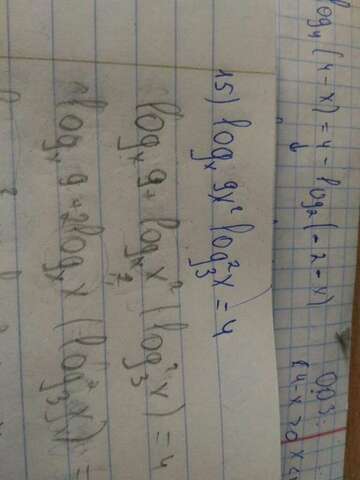 log₄(4-x)=4-log₂(-2-x)
ОДЗ:
15) logₓ 9x² log₃²x = 4
logₓ 9 · logₓ x² (log₃² x) = 4
logₓ 9 · 2 logₓ x (log₃² x) =